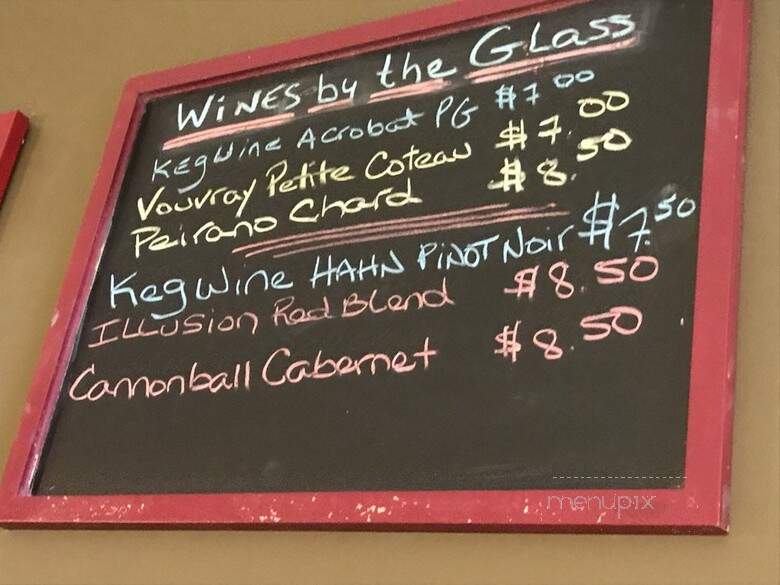 WINES by the GLASS
KEGWine Acrobat PG $7 00
Vouvray Petite Coteau $7.00
Peirano Chard $8.50
Keg Wine HAHN PINOT Noir $7.50
ILLUSion Red BLend $8.50
Cannonball Cabernet $8.50
menupix